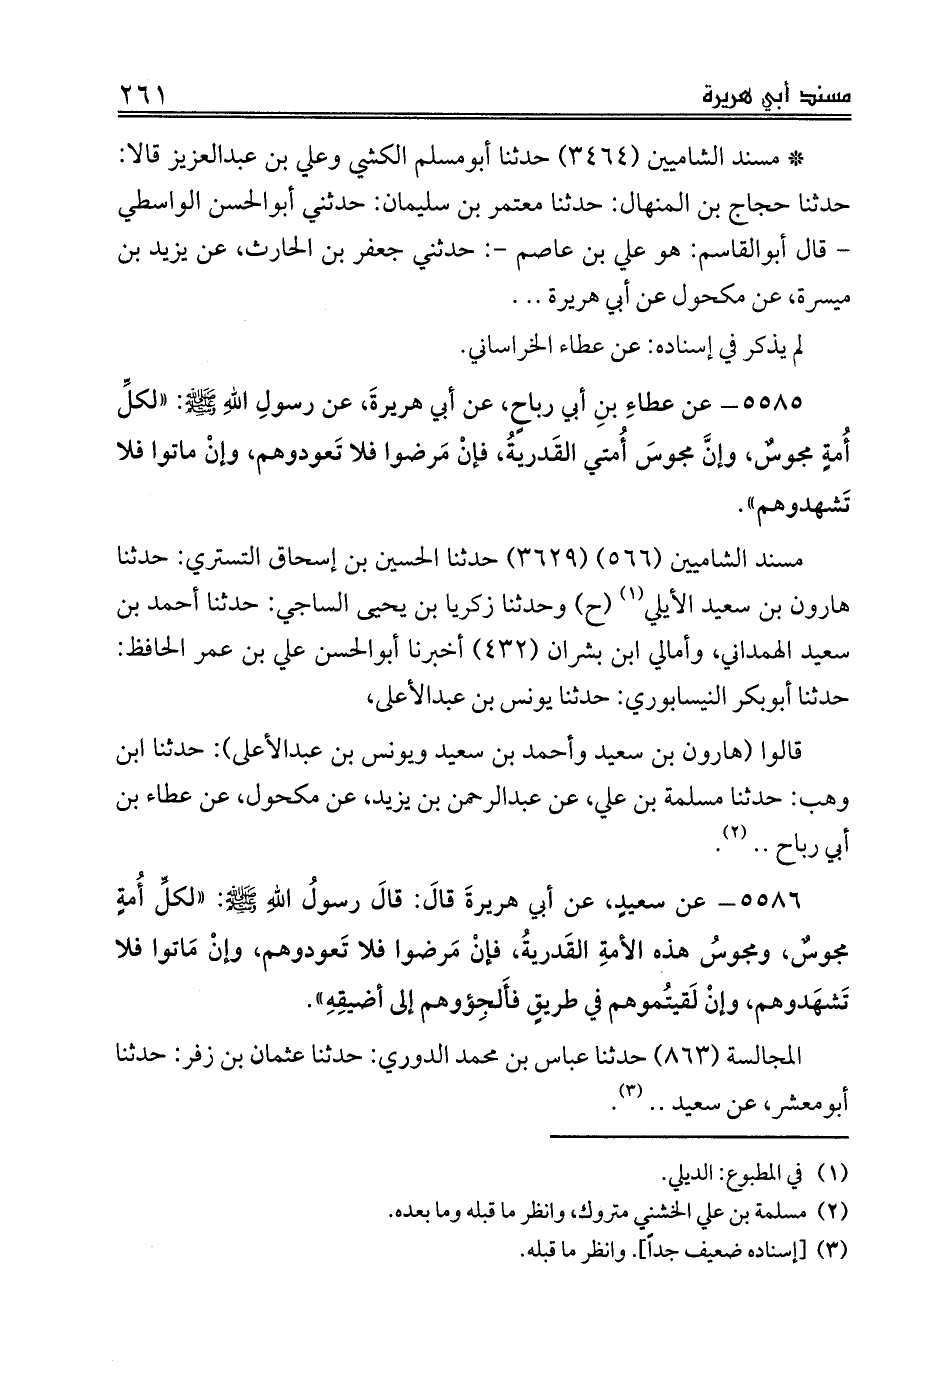 مسند أبي هريرة ٢٦١
* مسند الشاميين (٣٤٦٤) حدثنا أبومسلم الكشي وعلي بن عبدالعزيز قالا:
حدثنا حجاج بن المنهال: حدثنا معتمر بن سليمان: حدثني أبوالحسن الواسطي
- قال أبوالقاسم: هو علي بن عاصم -: حدثني جعفر بن الحارث، عن يزيد بن
ميسرة، عن مكحول عن أبي هريرة ...
لم يذكر في إسناده: عن عطاء الخراساني.
٥٥٨٥ــ عن عطاءِ بنِ أبي رباحٍ، عن أبي هريرةَ، عن رسولِ اللهِ ﷺ: «لكلِّ
أُمةٍ مجوسٌ، وإنَّ مجوسَ أُمتي القَدريةُ، فإنْ مَرضوا فلا تَعودوهم، وإنْ ماتوا فلا
تَشهدوهم».
مسند الشاميين (٥٦٦) (٣٦٢٩) حدثنا الحسين بن إسحاق التستري: حدثنا
هارون بن سعيد الأيلي(١) (ح) وحدثنا زكريا بن يحيى الساجي: حدثنا أحمد بن
سعيد الهمداني، وأمالي ابن بشران (٤٣٢) أخبرنا أبوالحسن علي بن عمر الحافظ:
حدثنا أبوبكر النيسابوري: حدثنا يونس بن عبدالأعلى،
قالوا (هارون بن سعيد وأحمد بن سعيد ويونس بن عبدالأعلى): حدثنا ابن
وهب: حدثنا مسلمة بن علي، عن عبدالرحمن بن يزيد، عن مكحول، عن عطاء بن
أبي رباح .. (٢).
٥٥٨٦ــ عن سعيدٍ، عن أبي هريرةَ قالَ: قالَ رسولُ اللهِ ﷺ: «لكلِّ أُمةٍ
مجوسٌ، ومجوسُ هذه الأمةِ القَدريةُ، فإنْ مَرضوا فلا تَعودوهم، وإنْ مَاتوا فلا
تَشهَدوهم، وإنْ لَقيتُموهم في طريقٍ فأَلجِؤوهم إلى أضيقِهِ».
المجالسة (٨٦٣) حدثنا عباس بن محمد الدوري: حدثنا عثمان بن زفر: حدثنا
أبومعشر، عن سعيد .. (٣).
(١) في المطبوع: الديلي.
(٢) مسلمة بن علي الخشني متروك، وانظر ما قبله وما بعده.
(٣) [إسناده ضعيف جداً]. وانظر ما قبله.